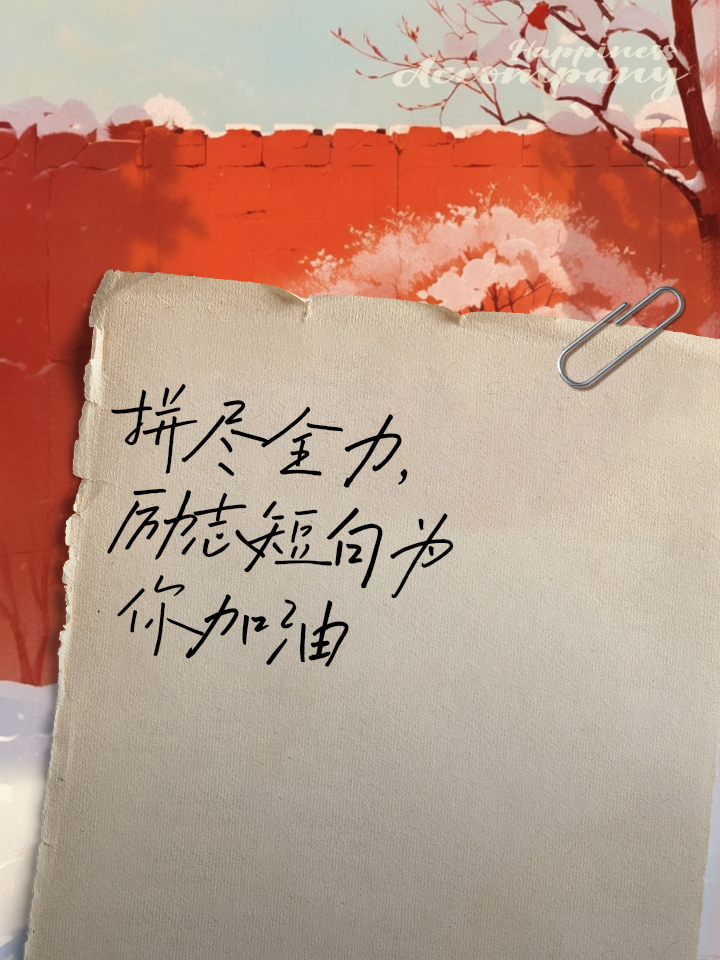 Happiness
Accompany
拼尽全力,
励志短句为
你加油